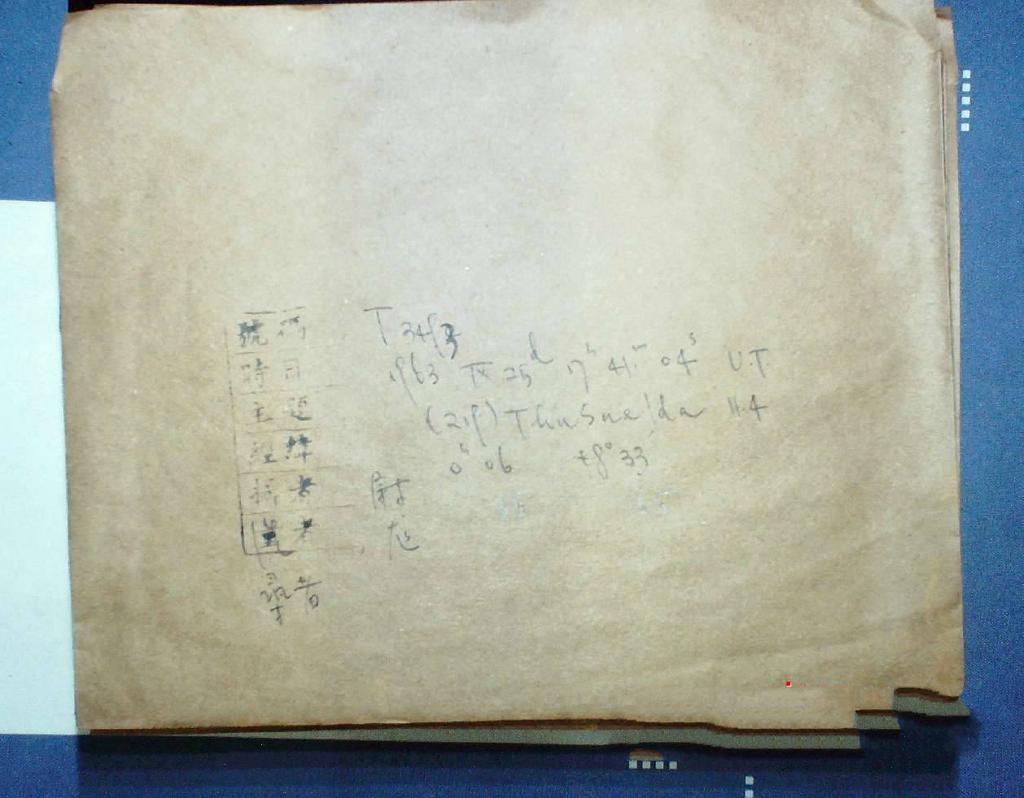 號碼 T 3493
時日 1963 IX 25d 17h 41m 04s U.T
主題 (219) Thusnelda 11.4
經緯 0h 06 +8° 33
者
者
尋者